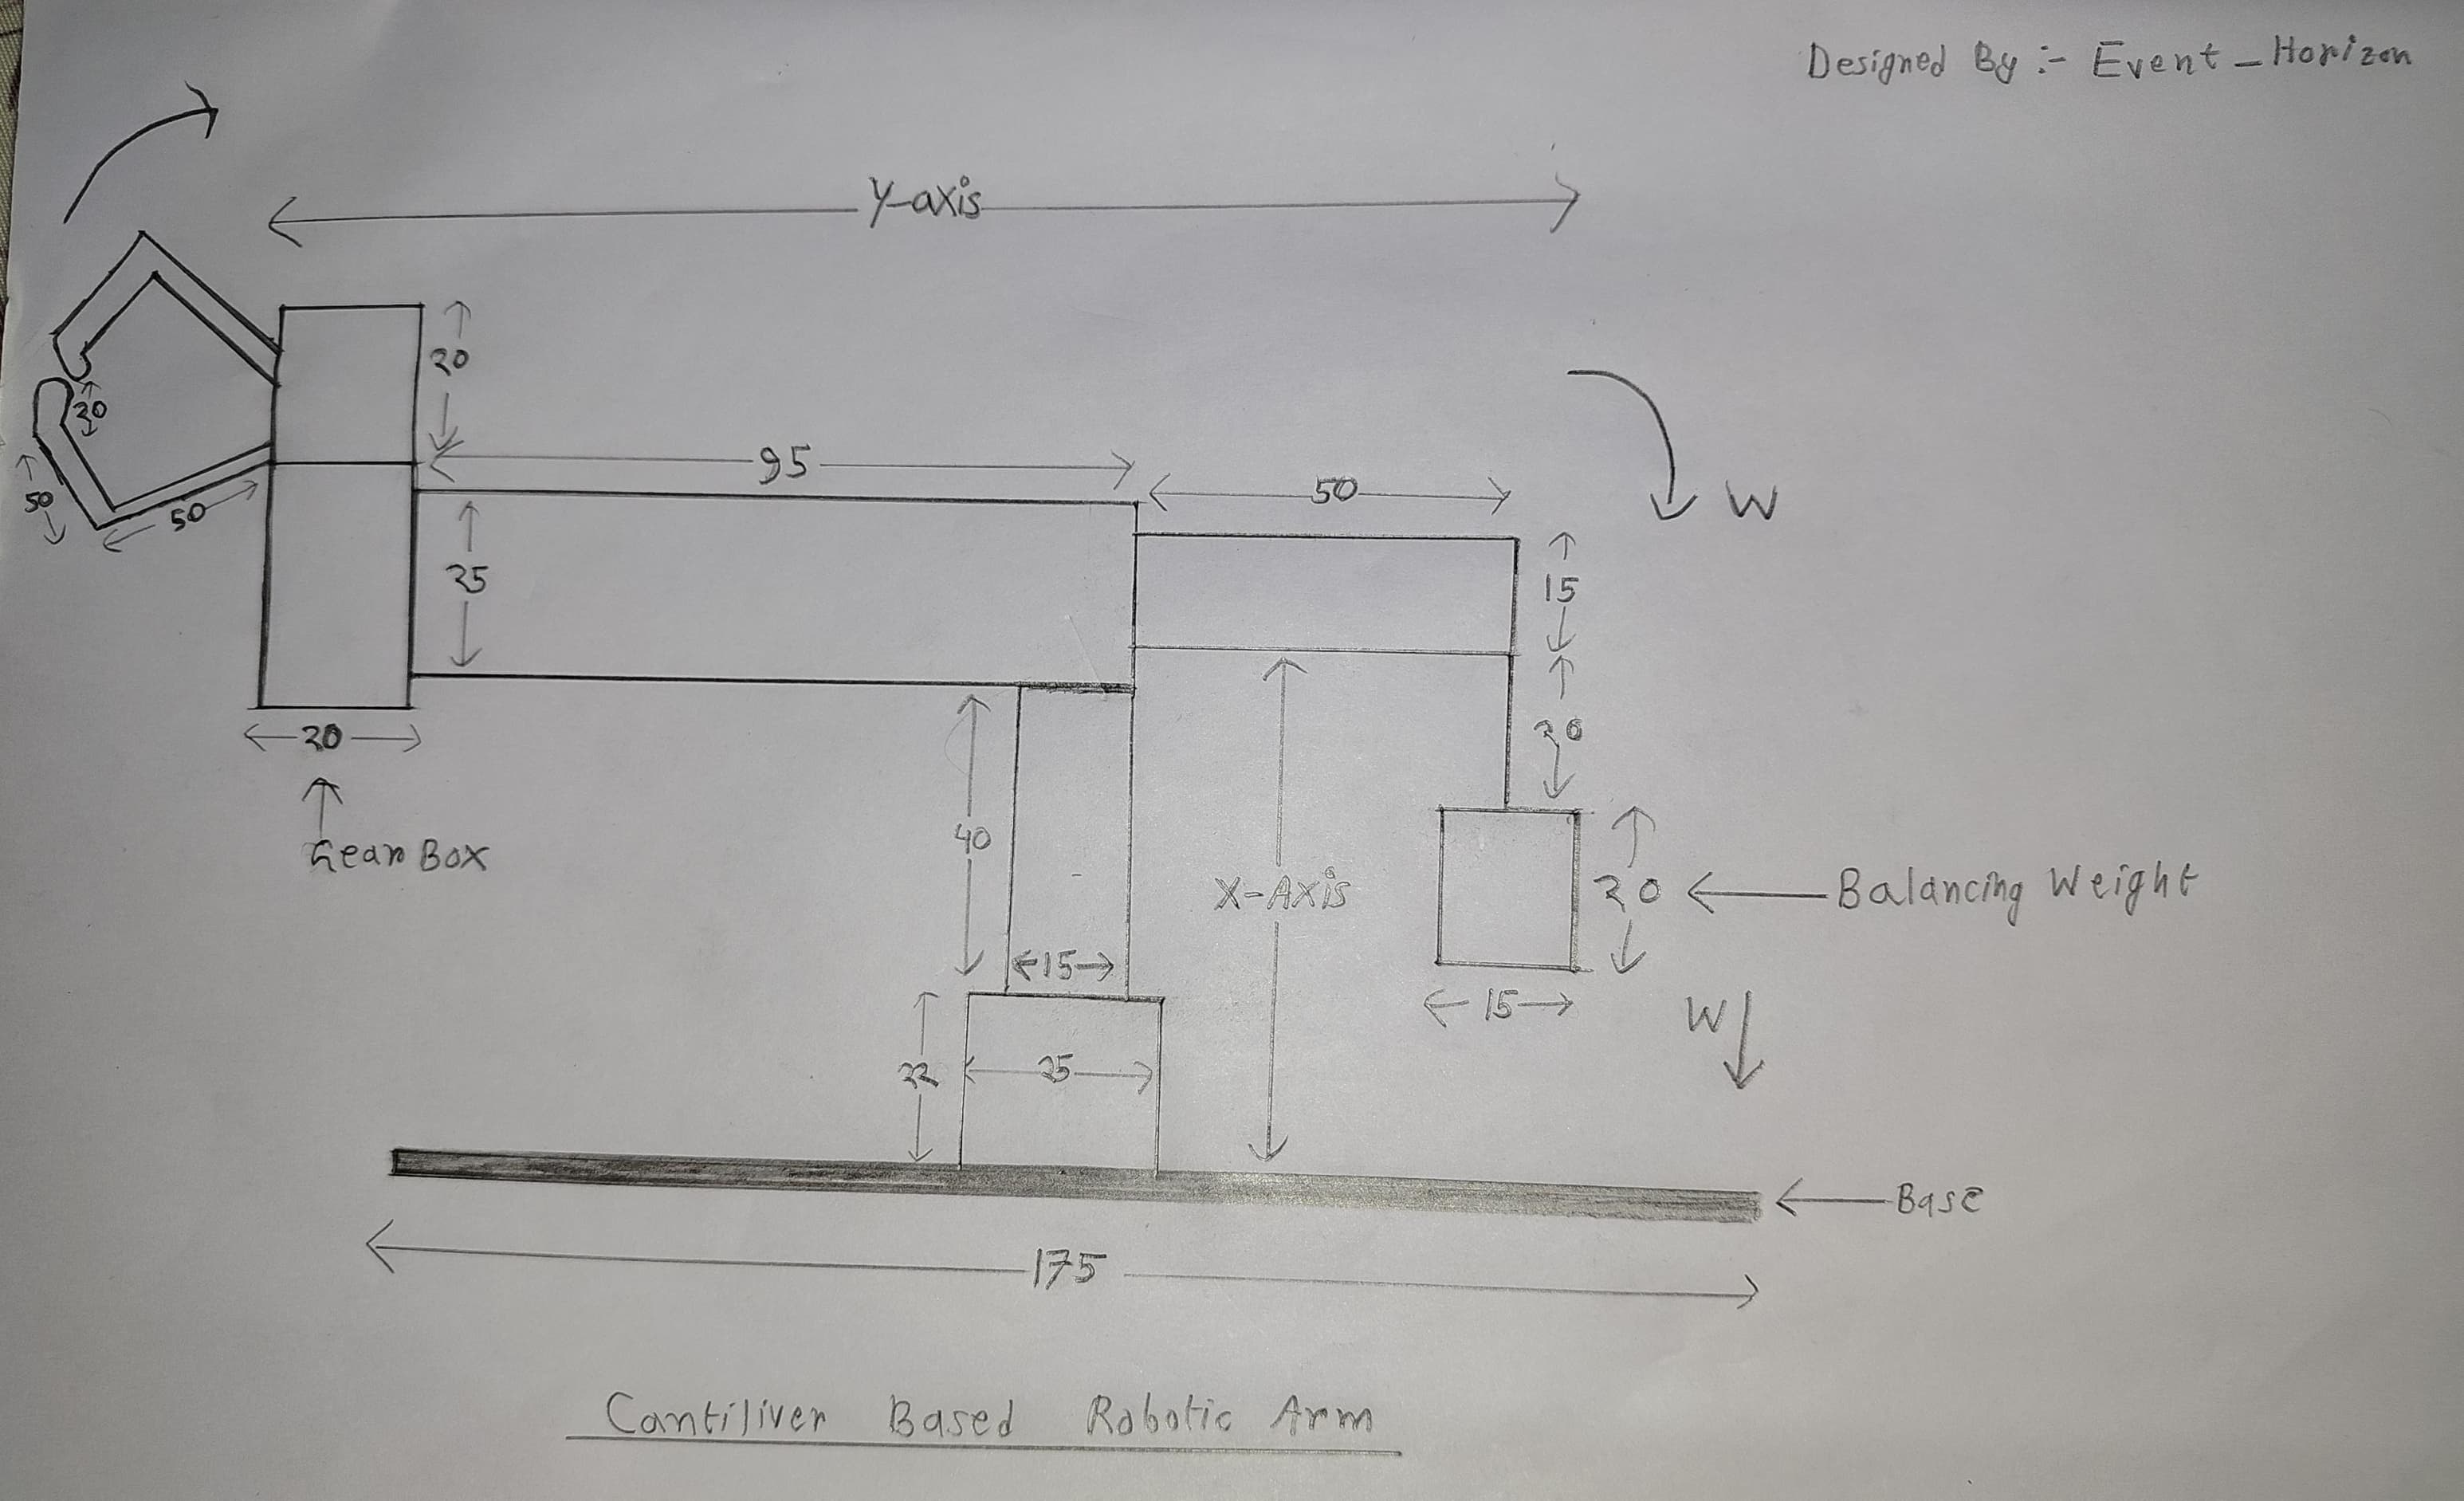 Designed By :- Event_Horizon
Y-axis
20
20
50
50
95
50
W
25
15
20
20
Gear Box
40
X-Axis
20
Balancing Weight
15
15
W
22
25
Base
175
Cantiliver Based Robotic Arm